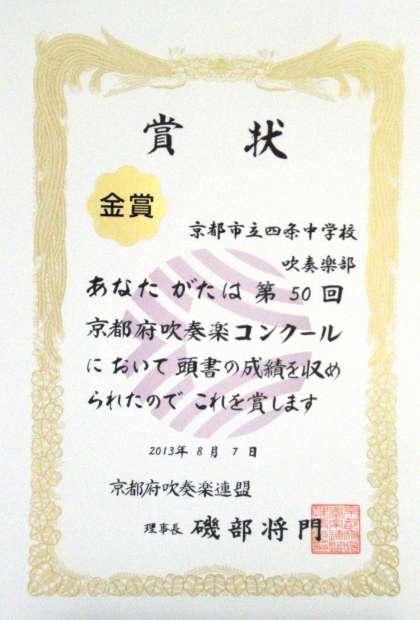 賞状
金賞
京都市立四条中学校
吹奏楽部
あなたがたは第50回
京都府吹奏楽コンクール
において頭書の成績を収め
られたのでこれを賞します
2013年8月7日
京都府吹奏楽連盟
理事長 磯部将門